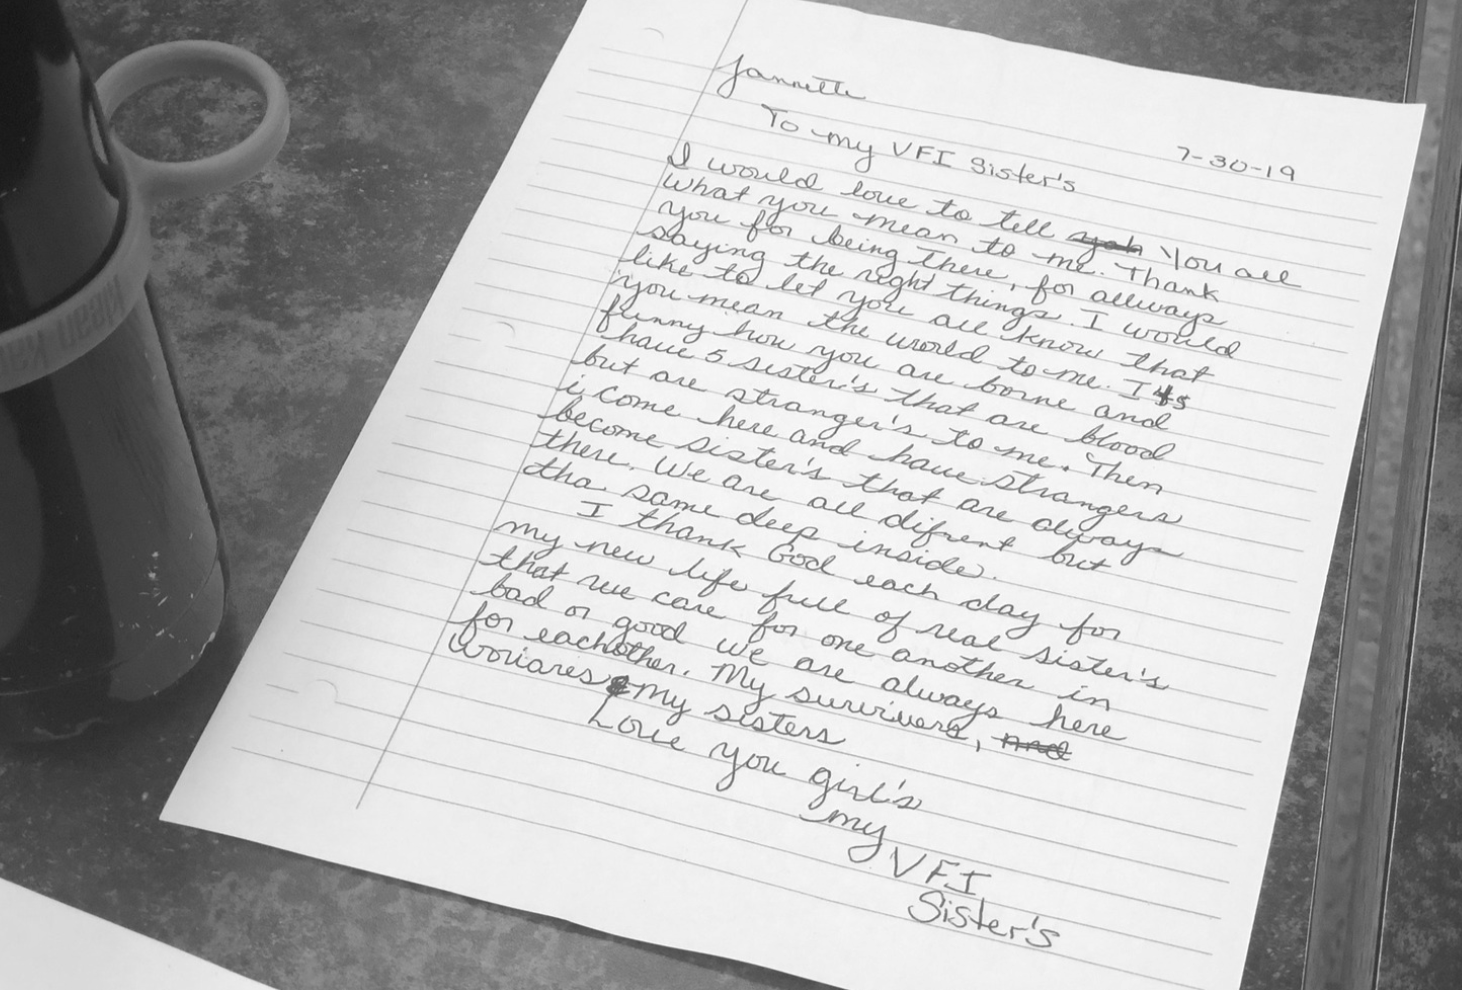 Jannette
To my VFI Sister's
7-30-19
I would love to tell yah You all
what you mean to me. Thank
you for being there, for allways
saying the right things. I would
like to let you all know that
you mean the world to me. Its
funny how you are borne and
have 5 sister's that are blood
but are stranger's to me. Then
i come here and have strangers
become sister's that are always
there. We are all difrent but
tha same deep inside.
I thank God each day for
my new life full of real sister's
that we care for one another in
bad or good we are always here
for eachother. My survivers, and
woriares my sisters
Love you girl's
my
VFI
Sister's